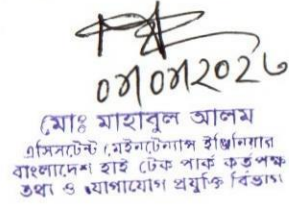 ০৮/০৮/২০২৩
মোঃ মাহাবুল আলম
এসিসটেন্ট মেইনটেন্যান্স ইঞ্জিনিয়ার
বাংলাদেশ হাই টেক পার্ক কর্তৃপক্ষ
তথ্য ও যোগাযোগ প্রযুক্তি বিভাগ